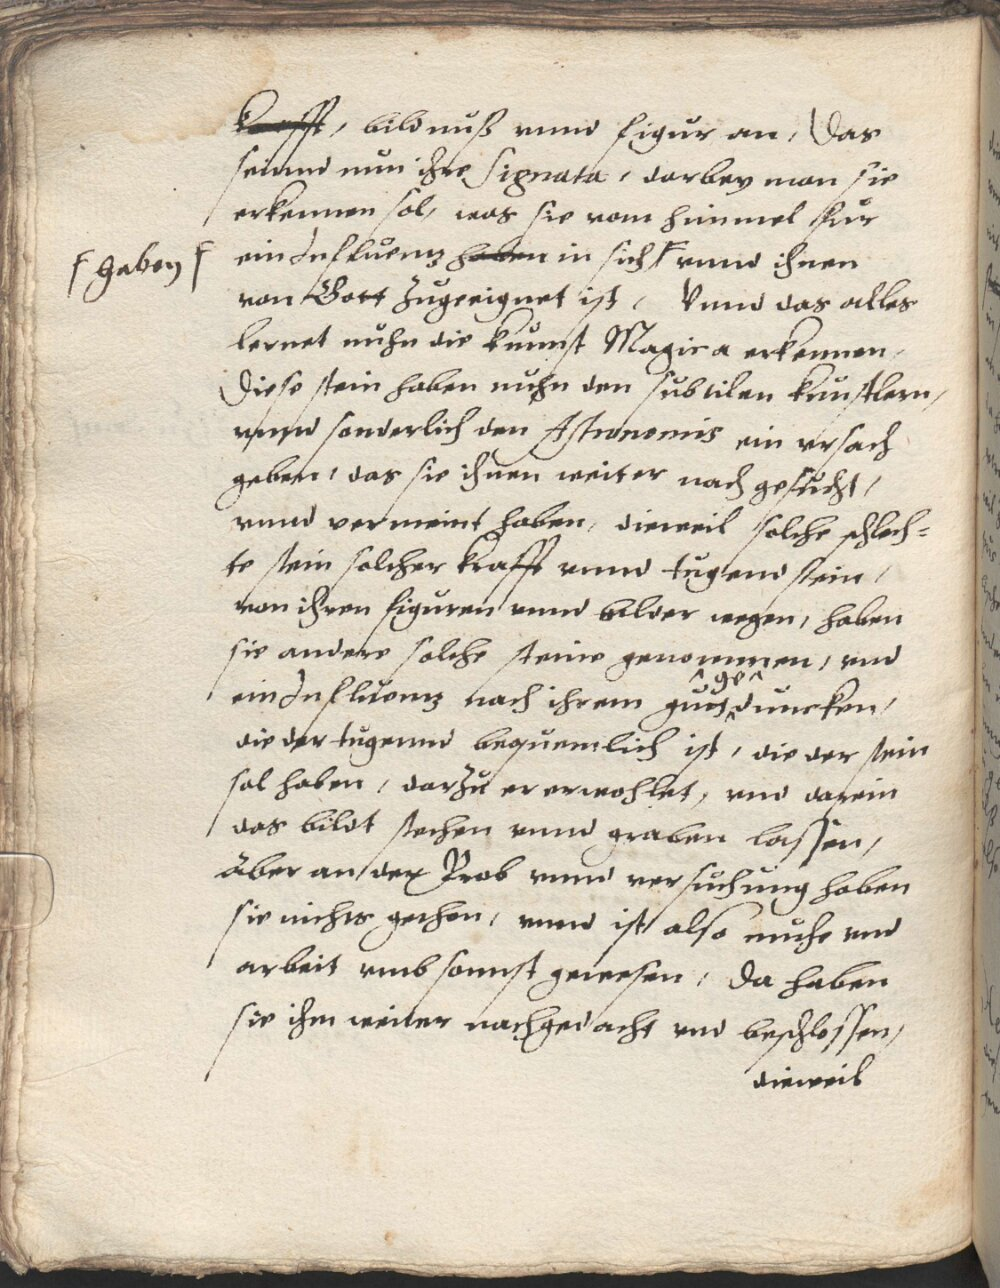 krafft, bildnuß vnnd figur an, Das
seinnd nun ihre Signata, darbey man sie
erkennen sol, was sie vom himmel fur
ein Influentz haben in sich ⌈ vnnd ihnen
⌈ haben ⌈
von Gott zugeeignet ist, Vnnd das alles
lernet nuhn die kunnst Magica erkennen,
Diese stein haben nuhn den subtilen kunstlern,
vnnd sonderlich den Astronomis ein vrsach
geben, das sie ihnen weiter nach gesucht,
vnnd vermeint haben, dieweil solche schlech=
te stein solcher krafft vnnd tugend sein,
von ihren figuren vnnd bilder wegen, haben
sie andere solche steine genommen, vnd
ein Influentz nach ihrem gut ^ge^ duncken,
die der tugennd bequemlich ist, die der stein
sol haben, darzu er erwohlet, vnd darein
das bildt stechen vnnd graben lassen,
Aber an der Prob vnnd versuchung haben
sie nichts gethon, vnnd ist also muhe vnd
arbeit vmb sonnst gewesen, Da haben
sie ihm weiter nachgedacht vnd beschlossen,
dieweil